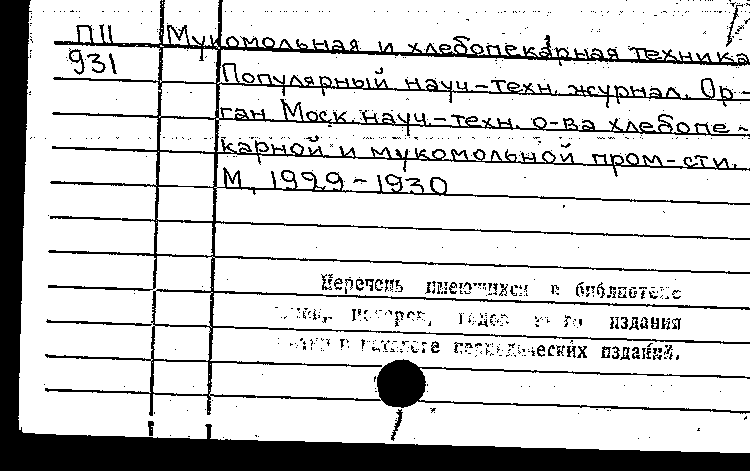 ПII Мукомольная и хлебопекарная техника
931 Популярный науч-техн. журнал. Ор-
ган Моск. науч-техн. о-ва хлебопе-
карной и мукомольной пром-сти.
М, 1929-1930
Перечень имеющихся в библиотеке
номеров, годов издания
в каталоге периодических изданий.